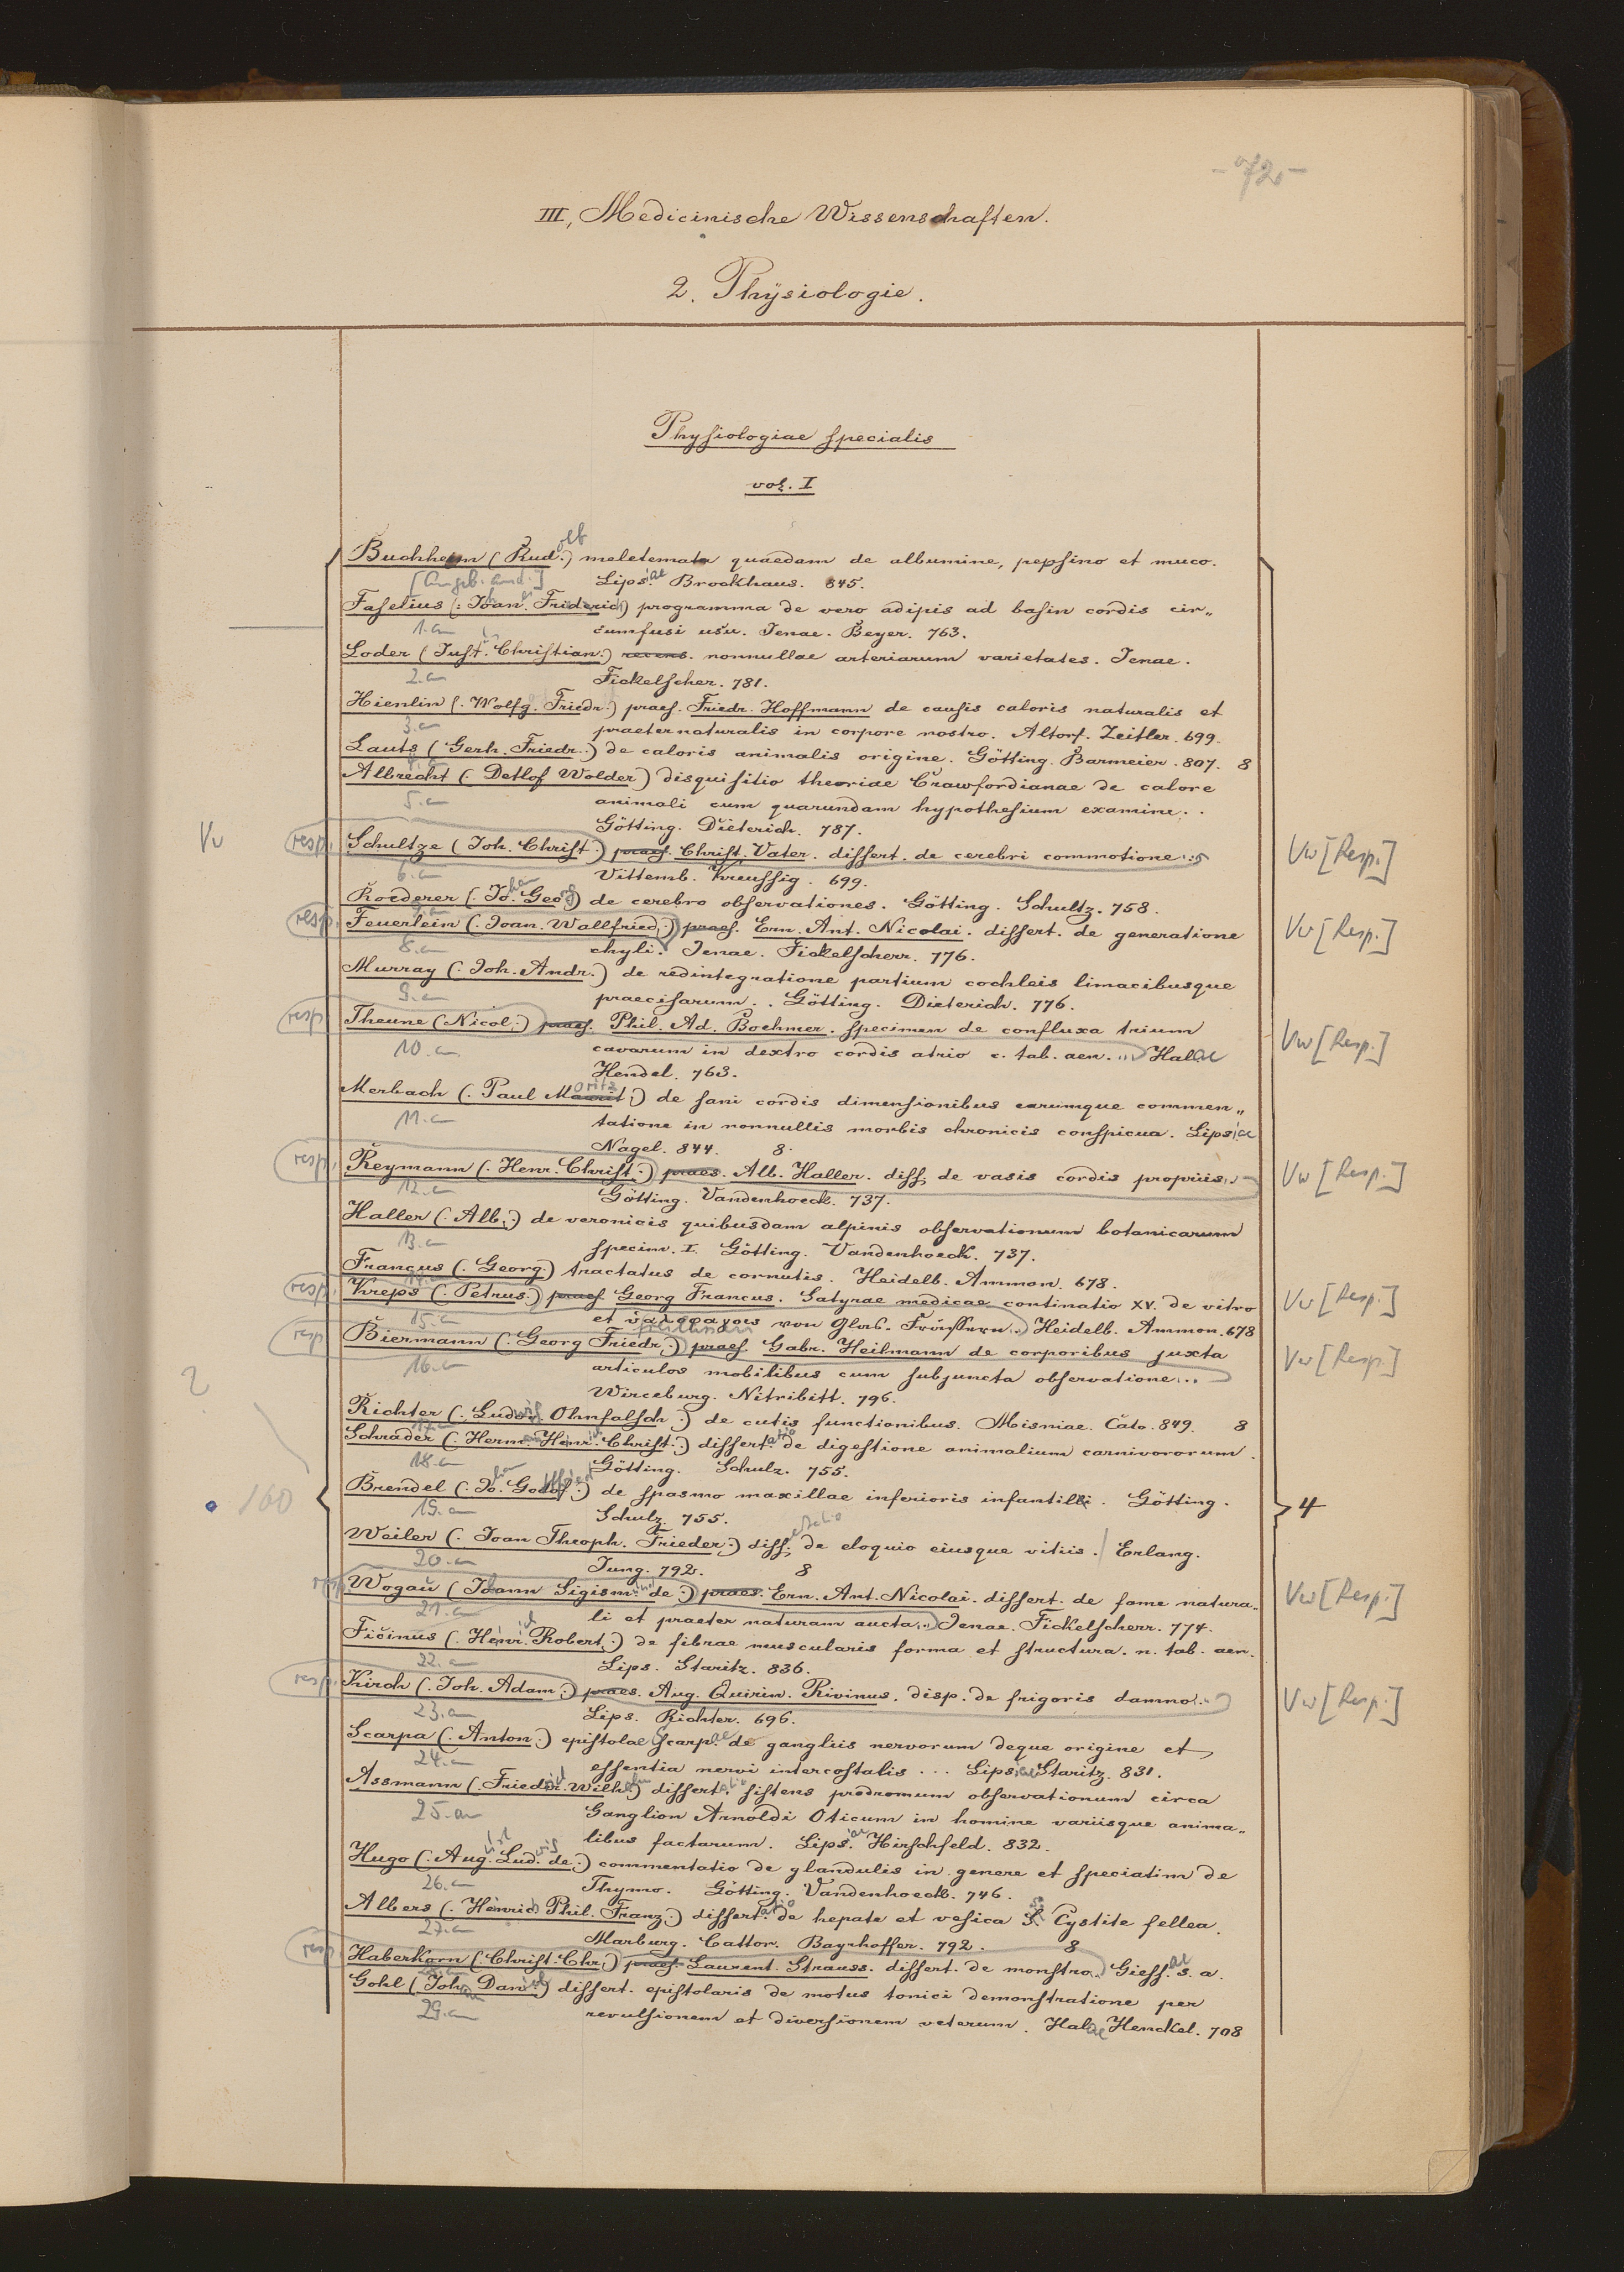 -72-
III, Medicinische Wissenschaften.
2. Physiologie.
Physiologiae specialis
vol. I
Buchheim (Rud.) olf meletemata quaedam de albumine, pepsino et muco.
[angeb. and.] Lips.iae Brockhaus. 845.
Faselius (: Joan. Friderich) programma de vero adipis ad basin cordis cir„
1. an cumfusi usu. Jenae. Beyer. 763.
Loder (Just. Christian.) recens. nonnullae arteriarum varietates. Jenae.
2. an Fickelscher. 781.
Hienlin (. Wolfg. Friedr.) praes. Friedr. Hoffmann de causis caloris naturalis et
3. an praeternaturalis in corpore nostro. Altorf. Zeitler. 699.
Lauts (Gerh. Friedr.) de caloris animalis origine. Götting. Barmeier. 807. 8
4. an
Albrecht (. Detlof Wolder) disquisitio theoriae Crawfordianae de calore
5. an animali cum quarundam hypothesium examine..
Götting. Dieterich. 787.
Vv resp. Schultze (Joh. Christ.) praes. Christ. Vater. dissert. de cerebri commotione... Vw [Resp.]
6. an Vittemb. Kreussig. 699.
Roederer (. Jo.han Georg) de cerebro observationes. Götting. Schultz. 758.
7. an
resp. Feuerlein (. Joan. Wallfried.) praes. Ern. Ant. Nicolai. dissert. de generatione Vw [Resp.]
8. an chyli. Jenae. Fickelscherr. 776.
Murray (. Joh. Andr.) de redintegratione partium cochleis limacibusque
9. an praecisarum.. Götting. Dieterich. 776.
resp. Theune (Nicol.) praes. Phil. Ad. Boehmer. specimen de confluxa trium Vw [Resp.]
10. an cavarum in dextro cordis atrio c. tab. aen. ... Halae
Hendel. 763.
Merbach (. Paul Mauritoritz.) de sani cordis dimensionibus earumque commen„
11. an tatione in nonnullis morbis chronicis conspicua. Lipsiae
Nagel. 844. 8.
resp. Reymann (. Henr. Christ.) praes. Alb. Haller. diss. de vasis cordis propriis... Vw [Resp.]
12. an Götting. Vandenhoeck. 737.
Haller (. Alb.) de veronicis quibusdam alpinis observationum botanicarum
13. an specim. I. Götting. Vandenhoeck. 737.
Francus (. Georg.) tractatus de cornutis. Heidelb. Ammon. 678.
14. an
resp. Kreps (. Petrus.) praes. Georg Francus. Satyrae medicae continatio XV. de vitro Vw [Resp.]
15. an et von Glas- Heidelb. Ammon. 678
resp. Biermann (. Georg Friedr.) praes. Gabr. Heilmann de corporibus juxta Vw [Resp.]
16. an articulos mobilibus cum subjuncta observatione...
Wirceburg. Nitribitt. 796.
Richter (. Ludwig Ohnfalsch.) de cutis functionibus. Misniae. Cato. 849. 8
17. an
Schrader (. Herm. Henr. Christ.) dissert.atio de digestione animalium carnivororum.
18. an Götting. Schulz. 755.
2
160
4
Brendel (. Jo.han Godof.) de spasmo maxillae inferioris infantili. Götting.
19. an Schulz. 755.
Weiler (. Joan Theoph. Frieder.) diss.ertatio de eloquio eiusque vitiis. / Erlang.
20. an Jung. 792. 8
resp. Wogau (Joann Sigism. de.) praes. Ern. Ant. Nicolai. dissert. de fame natura„ Vw [Resp.]
21. an li et praeter naturam aucta... Jenae. Fickelscherr. 774.
Ficinus (. Henr. Robert.) de fibrae muscularis forma et structura. n. tab. aen.
22. an Lips. Staritz. 836.
resp. Kirch (. Joh. Adam.) praes. Aug. Quirin. Rivinus. disp. de frigoris damno... Vw [Resp.]
23. an Lips. Richter. 696.
Scarpa (. Anton.) epistolae Scarpae de gangliis nervorum deque origine et
24. an essentia nervi intercostalis ... Lipsiae Staritz. 831.
Assmann (. Friedr. Wilh.) dissert.atio sistens prodromum observationum circa
25. an Ganglion Arnoldi Oticum in homine variisque anima„
libus factarum. Lips.iae Hirschfeld. 832.
Hugo (. Aug.ust Lud.wig de.) commentatio de glandulis in genere et speciatim de
26. an Thymo. Götting. Vandenhoeck. 746.
Albers (. Henrich Phil. Franz.) dissert.atio de hepate et vesica S. Cystite fellea.
27. an Marburg. Cattor. Bayrhoffer. 792. 8
resp. Haberkorn (. Christ. Chr.) praes. Laurent. Strauss. dissert. de monstro.. Giess.ae s. a.
28. an
Gohl (. Joh. Dan.iel) dissert. epistolaris de motus tonici demonstratione per
29. an revulsionem et diversionem veterum. Halae Henckel. 708